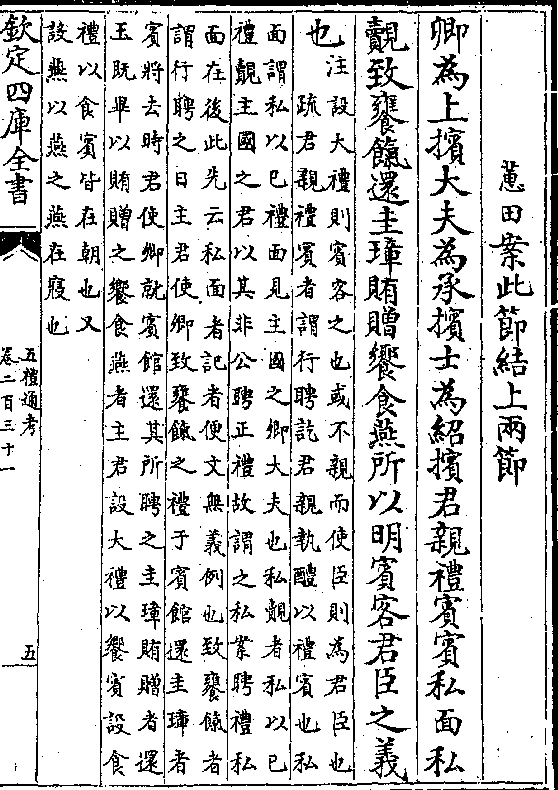 蕙田案此節結上兩節
卿為上擯大夫為承擯士為紹擯君親禮賓賓私面私
覿致饔餼還圭璋賄贈饗食燕所以明賓客君臣之義
也
注設大禮則賓客之也或不親而使臣則為君臣也
疏君親禮賓者謂行聘訖君親執醴以禮賓也私
面謂私以已禮面見主國之卿大夫也私覿者私以已
禮覿主國之君以其非公聘正禮故謂之私案聘禮私
面在後此先云私面者記者便文無義例也致饔餼者
謂行聘之日主君使卿致饔餼之禮于賓館還圭璋者
賓將去時君使卿就賓館還其所聘之圭璋賄贈者還
玉既畢以賄贈之饗食燕者主君設大禮以饗賓設食
禮以食賓皆在朝也又
設燕以燕之燕在寢也
欽定四庫全書
五禮通考
卷二百三十一
五